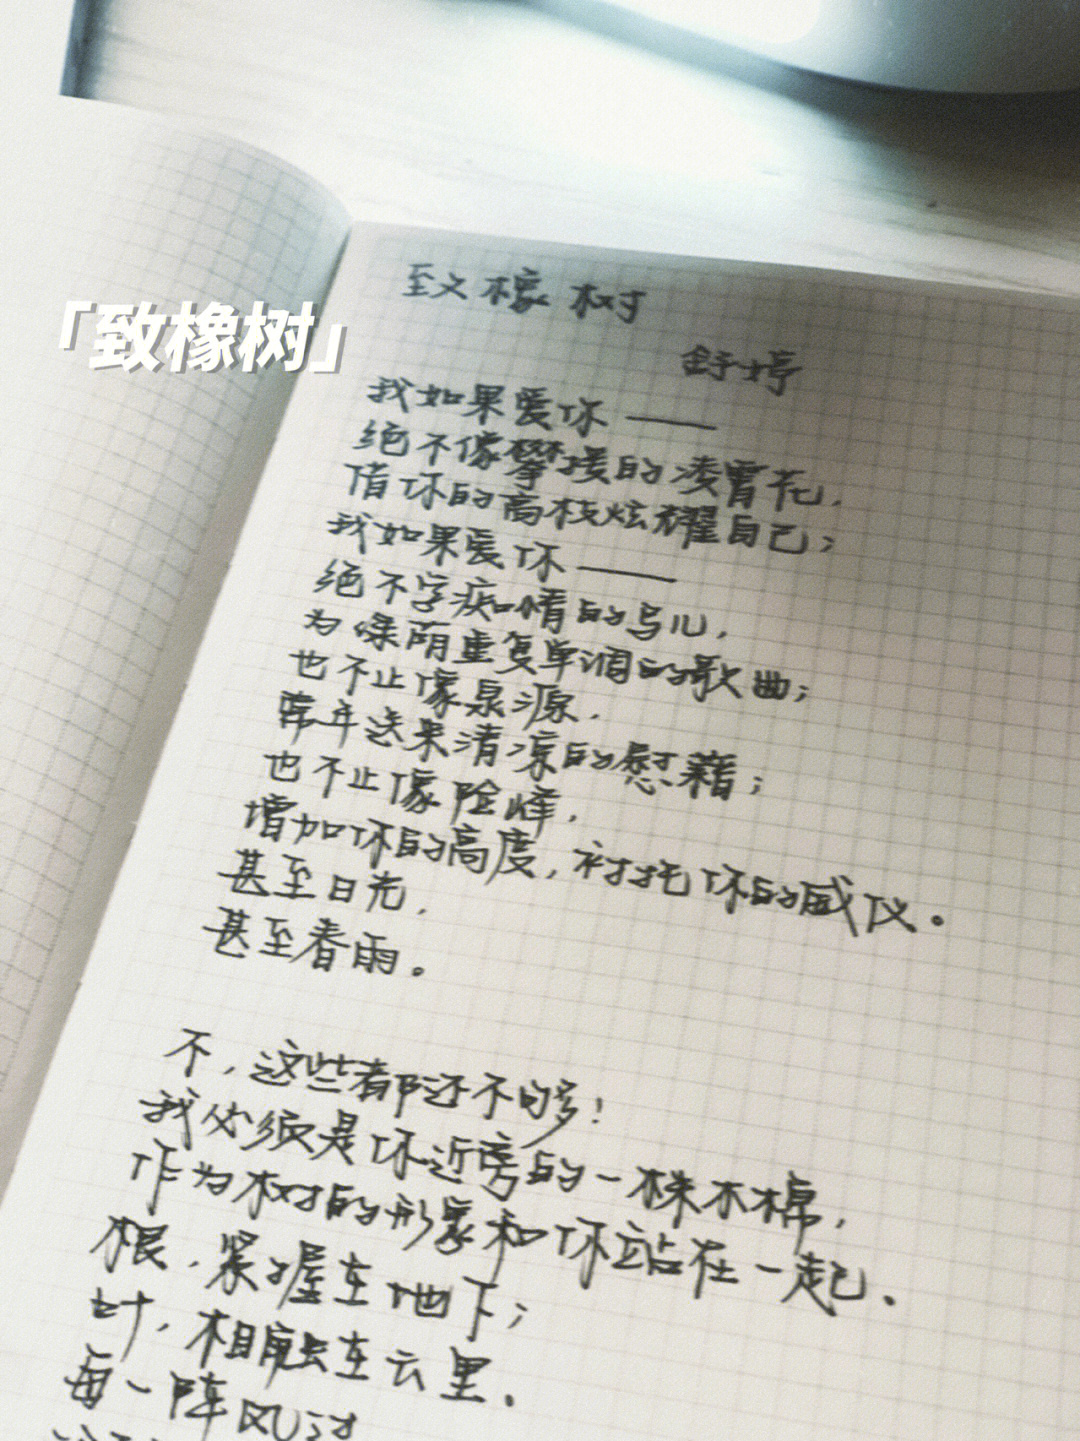 「致橡树」
致橡树
舒婷
我如果爱你——
绝不像攀援的凌霄花,
借你的高枝炫耀自己;
我如果爱你——
绝不学痴情的鸟儿,
为绿荫重复单调的歌曲;
也不止像泉源,
常年送来清凉的慰藉;
也不止像险峰,
增加你的高度,衬托你的威仪。
甚至日光,
甚至春雨。
不,这些都还不够!
我必须是你近旁的一株木棉,
作为树的形象和你站在一起.
根,紧握在地下;
叶,相触在云里.
每一阵风过